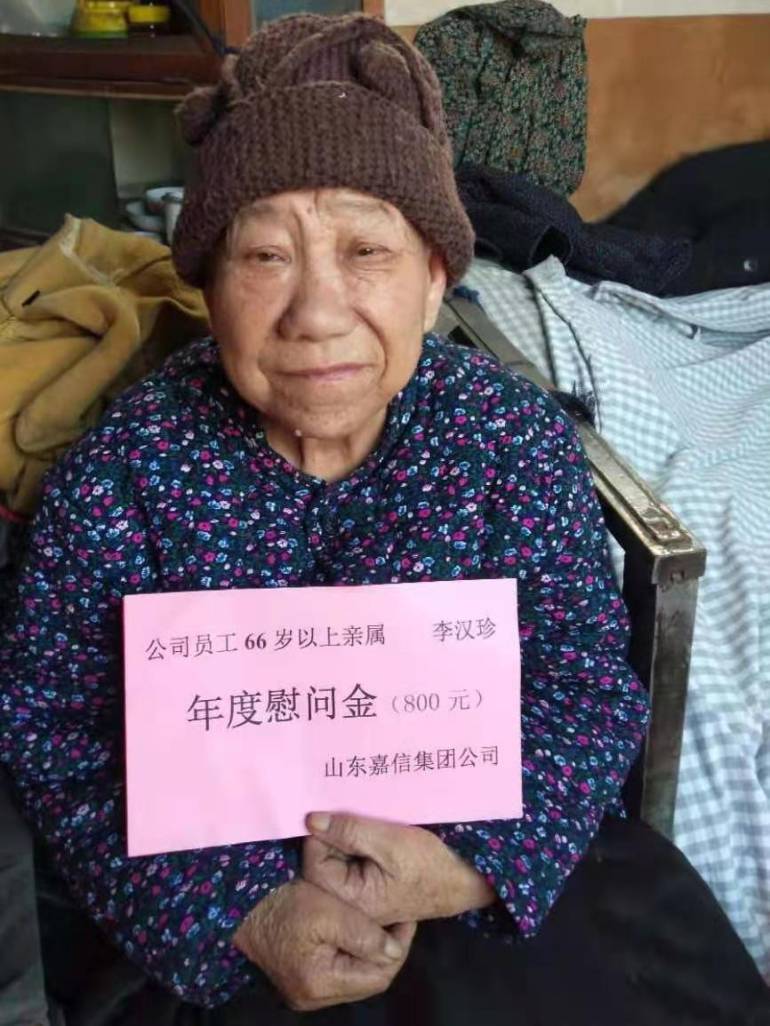 公司员工 66 岁以上亲属 李汉珍
年度慰问金（800 元）
山东嘉信集团公司